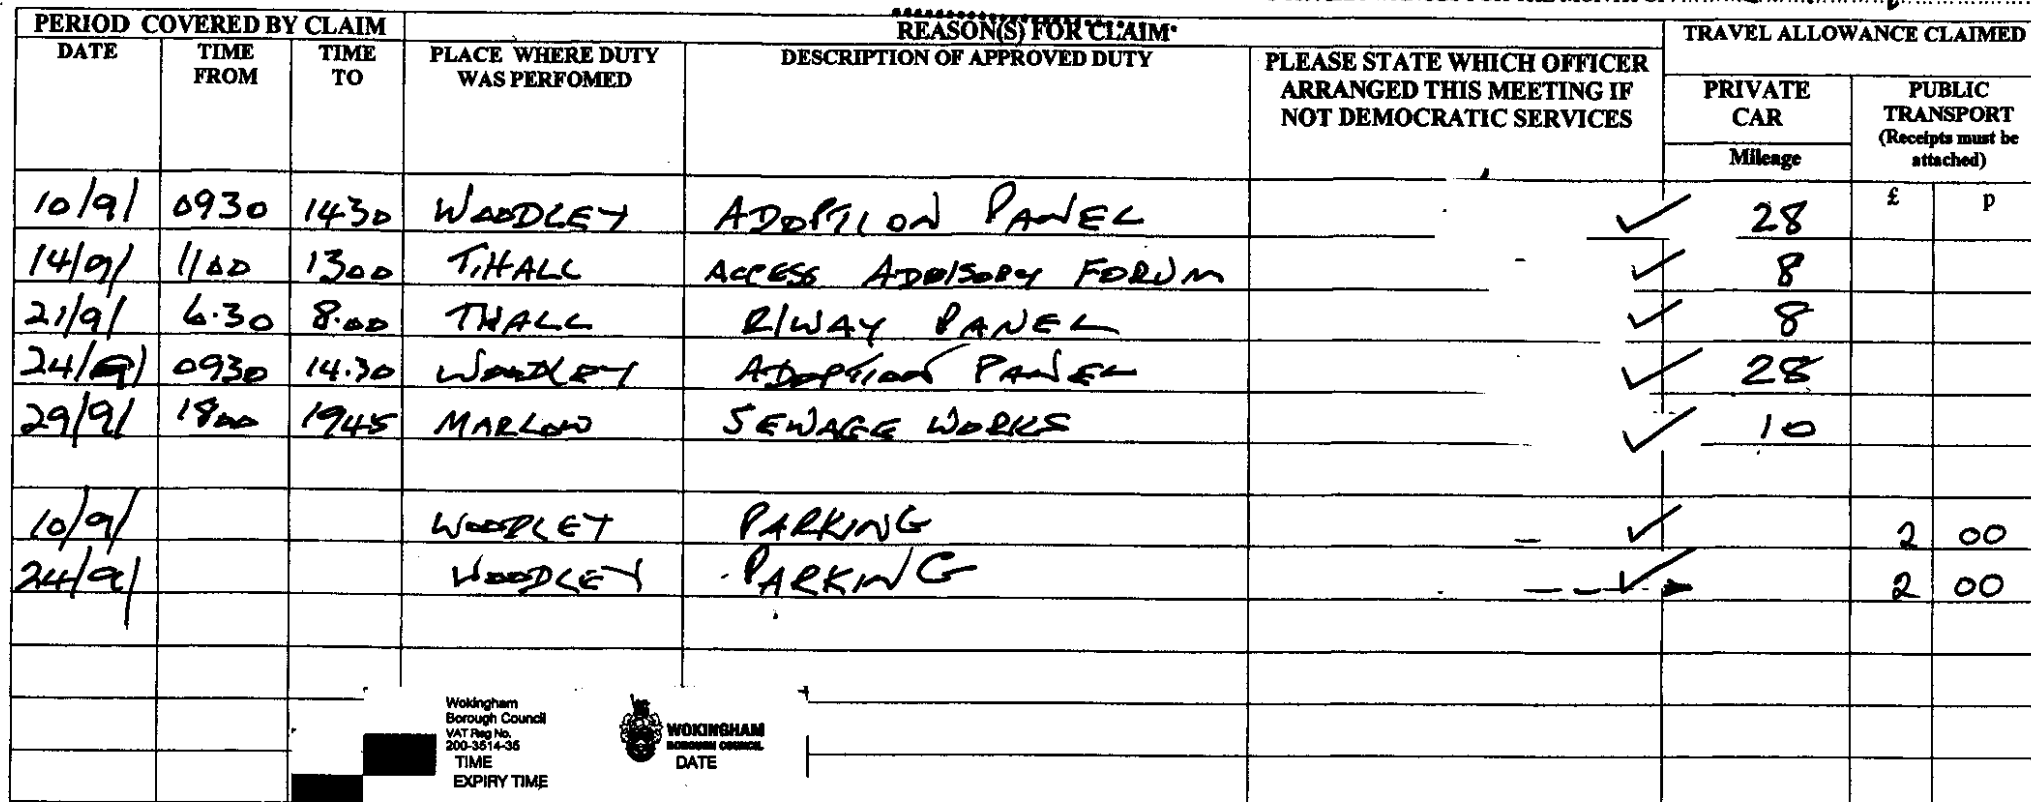 PERIOD COVERED BY CLAIM REASON(S) FOR CLAIM TRAVEL ALLOWANCE CLAIMED
DATE TIME FROM TIME TO PLACE WHERE DUTY WAS PERFOMED DESCRIPTION OF APPROVED DUTY PLEASE STATE WHICH OFFICER ARRANGED THIS MEETING IF NOT DEMOCRATIC SERVICES PRIVATE CAR PUBLIC TRANSPORT (Receipts must be attached)
Mileage
£ p
10/9/ 0930 1430 WOODLEY ADOPTION PANEL ✓ 28
14/9/ 1100 1300 T.HALL ACCESS ADVISORY FORUM ✓ 8
21/9/ 6.30 8.00 THALL R/WAY PANEL ✓ 8
24/9/ 0930 14.30 WOODLEY ADOPTION PANEL ✓ 28
29/9/ 1800 1945 MARLOW SEWAGE WORKS ✓ 10
10/9/ WOODLEY PARKING ✓ 2 00
24/9/ WOODLEY PARKING ✓ 2 00
Wokingham
Borough Council
VAT Reg No.
200-3514-35
TIME
EXPIRY TIME
WOKINGHAM
BOROUGH COUNCIL
DATE